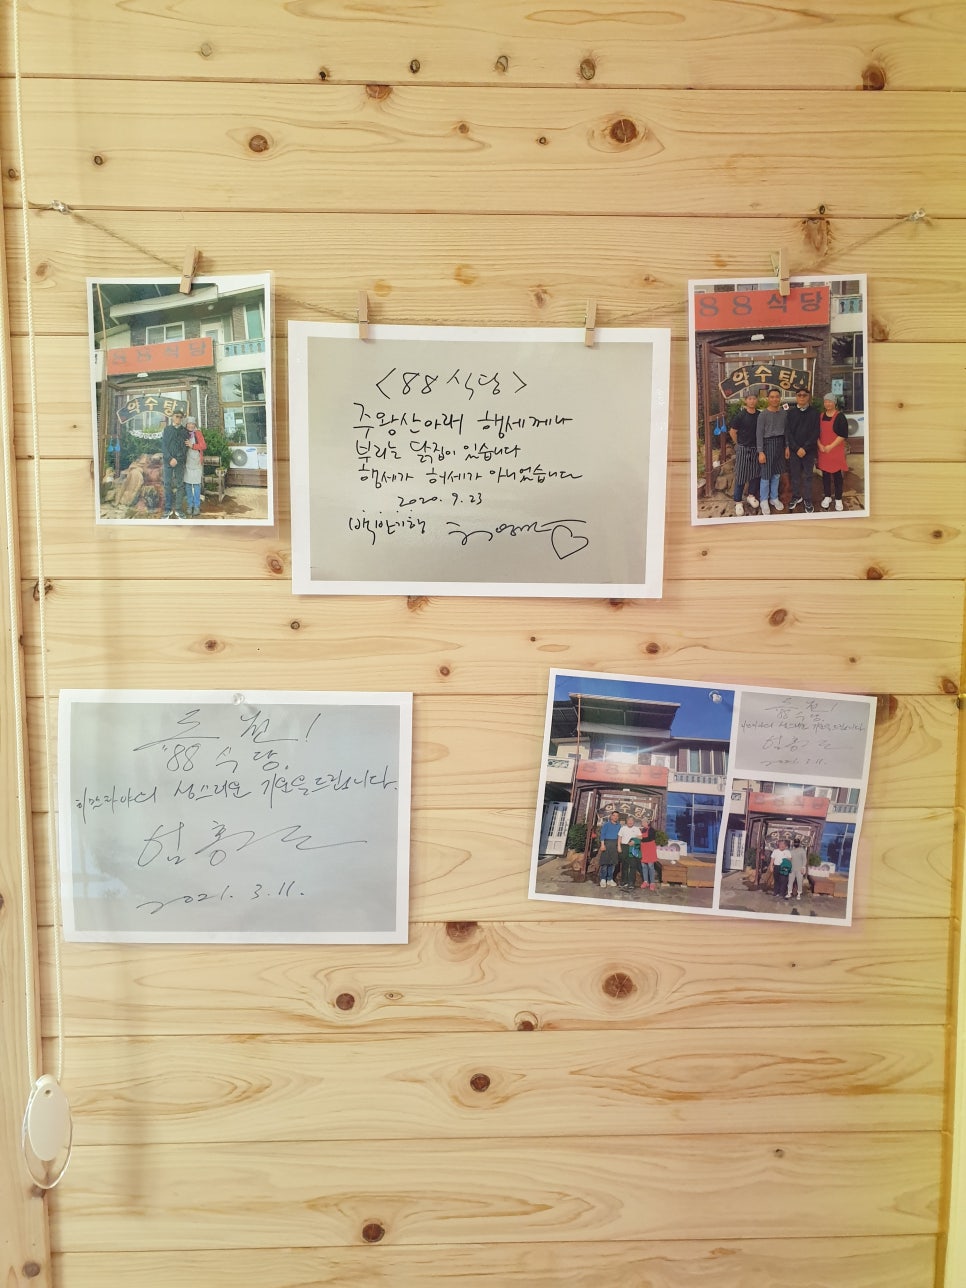 88식당
약수탕
<88 식당>
주왕산아래 행세깨나
부리는 닭집이 있습니다
행세가 허세가 아니었습니다
2020. 9. 23
백반기행 허영만
88식당
약수탕
축 원!
"88 식당.
히말라야의 성스러운 기운을 드립니다.
엄홍길
2021. 3. 11.
88식당
약수탕
88 식당.
엄홍길
2021. 3. 11.
88식당
약수탕